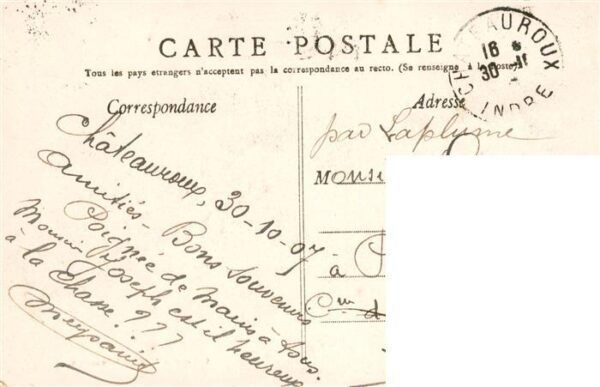 CARTE POSTALE
Tous les pays étrangers n'acceptent pas la correspondance au recto. (Se renseigner à la Poste)
Correspondance
Adresse
CHATEAUROUX
16
30 -1
INDRE
par Laplume
MONSI
à
Cne d
Châteauroux, 30-10-07
Amitiés - Bons Souvenirs
Poignée de mains à tous.
Monsieur Joseph est il heureux
à la chasse ???